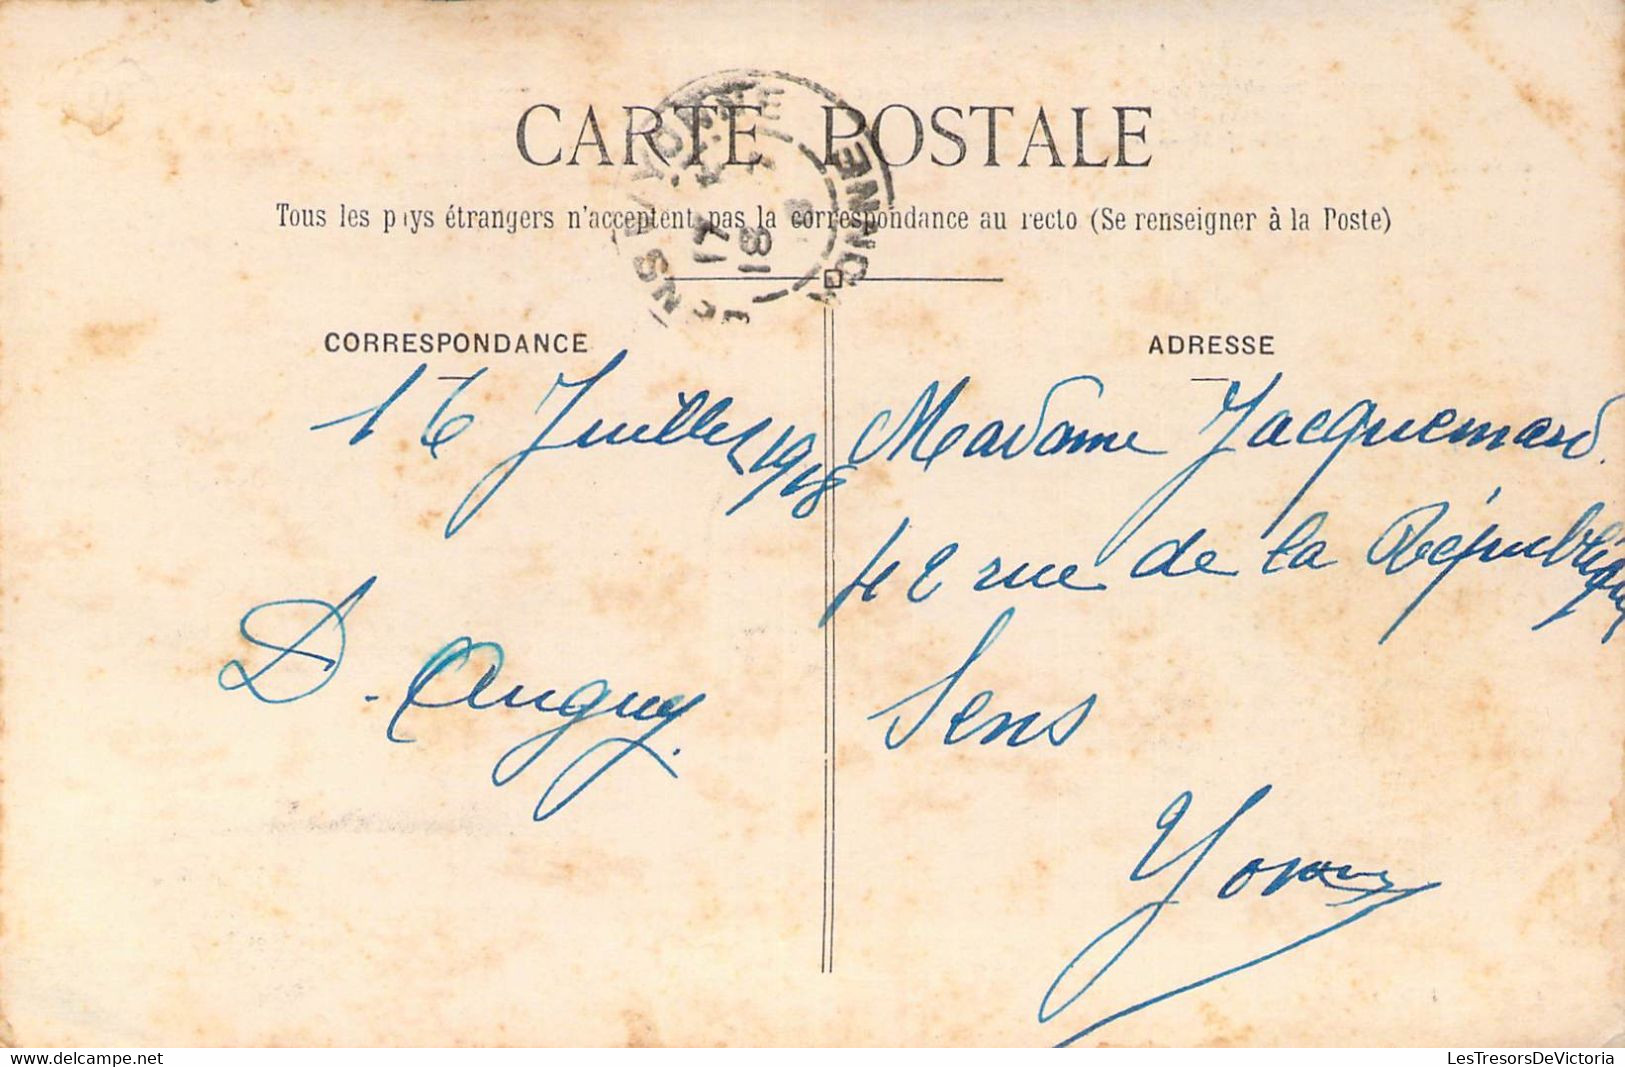 CARTE POSTALE
Tous les pays étrangers n'acceptent pas la correspondance au recto (Se renseigner à la Poste)
SENS YONNE
17
18
CORRESPONDANCE
16 Juillet 1918
D. Anguy.
ADRESSE
Madame Jacquemard.
42 rue de la République
Sens
Yonne
www.delcampe.net
LesTresorsDeVictoria